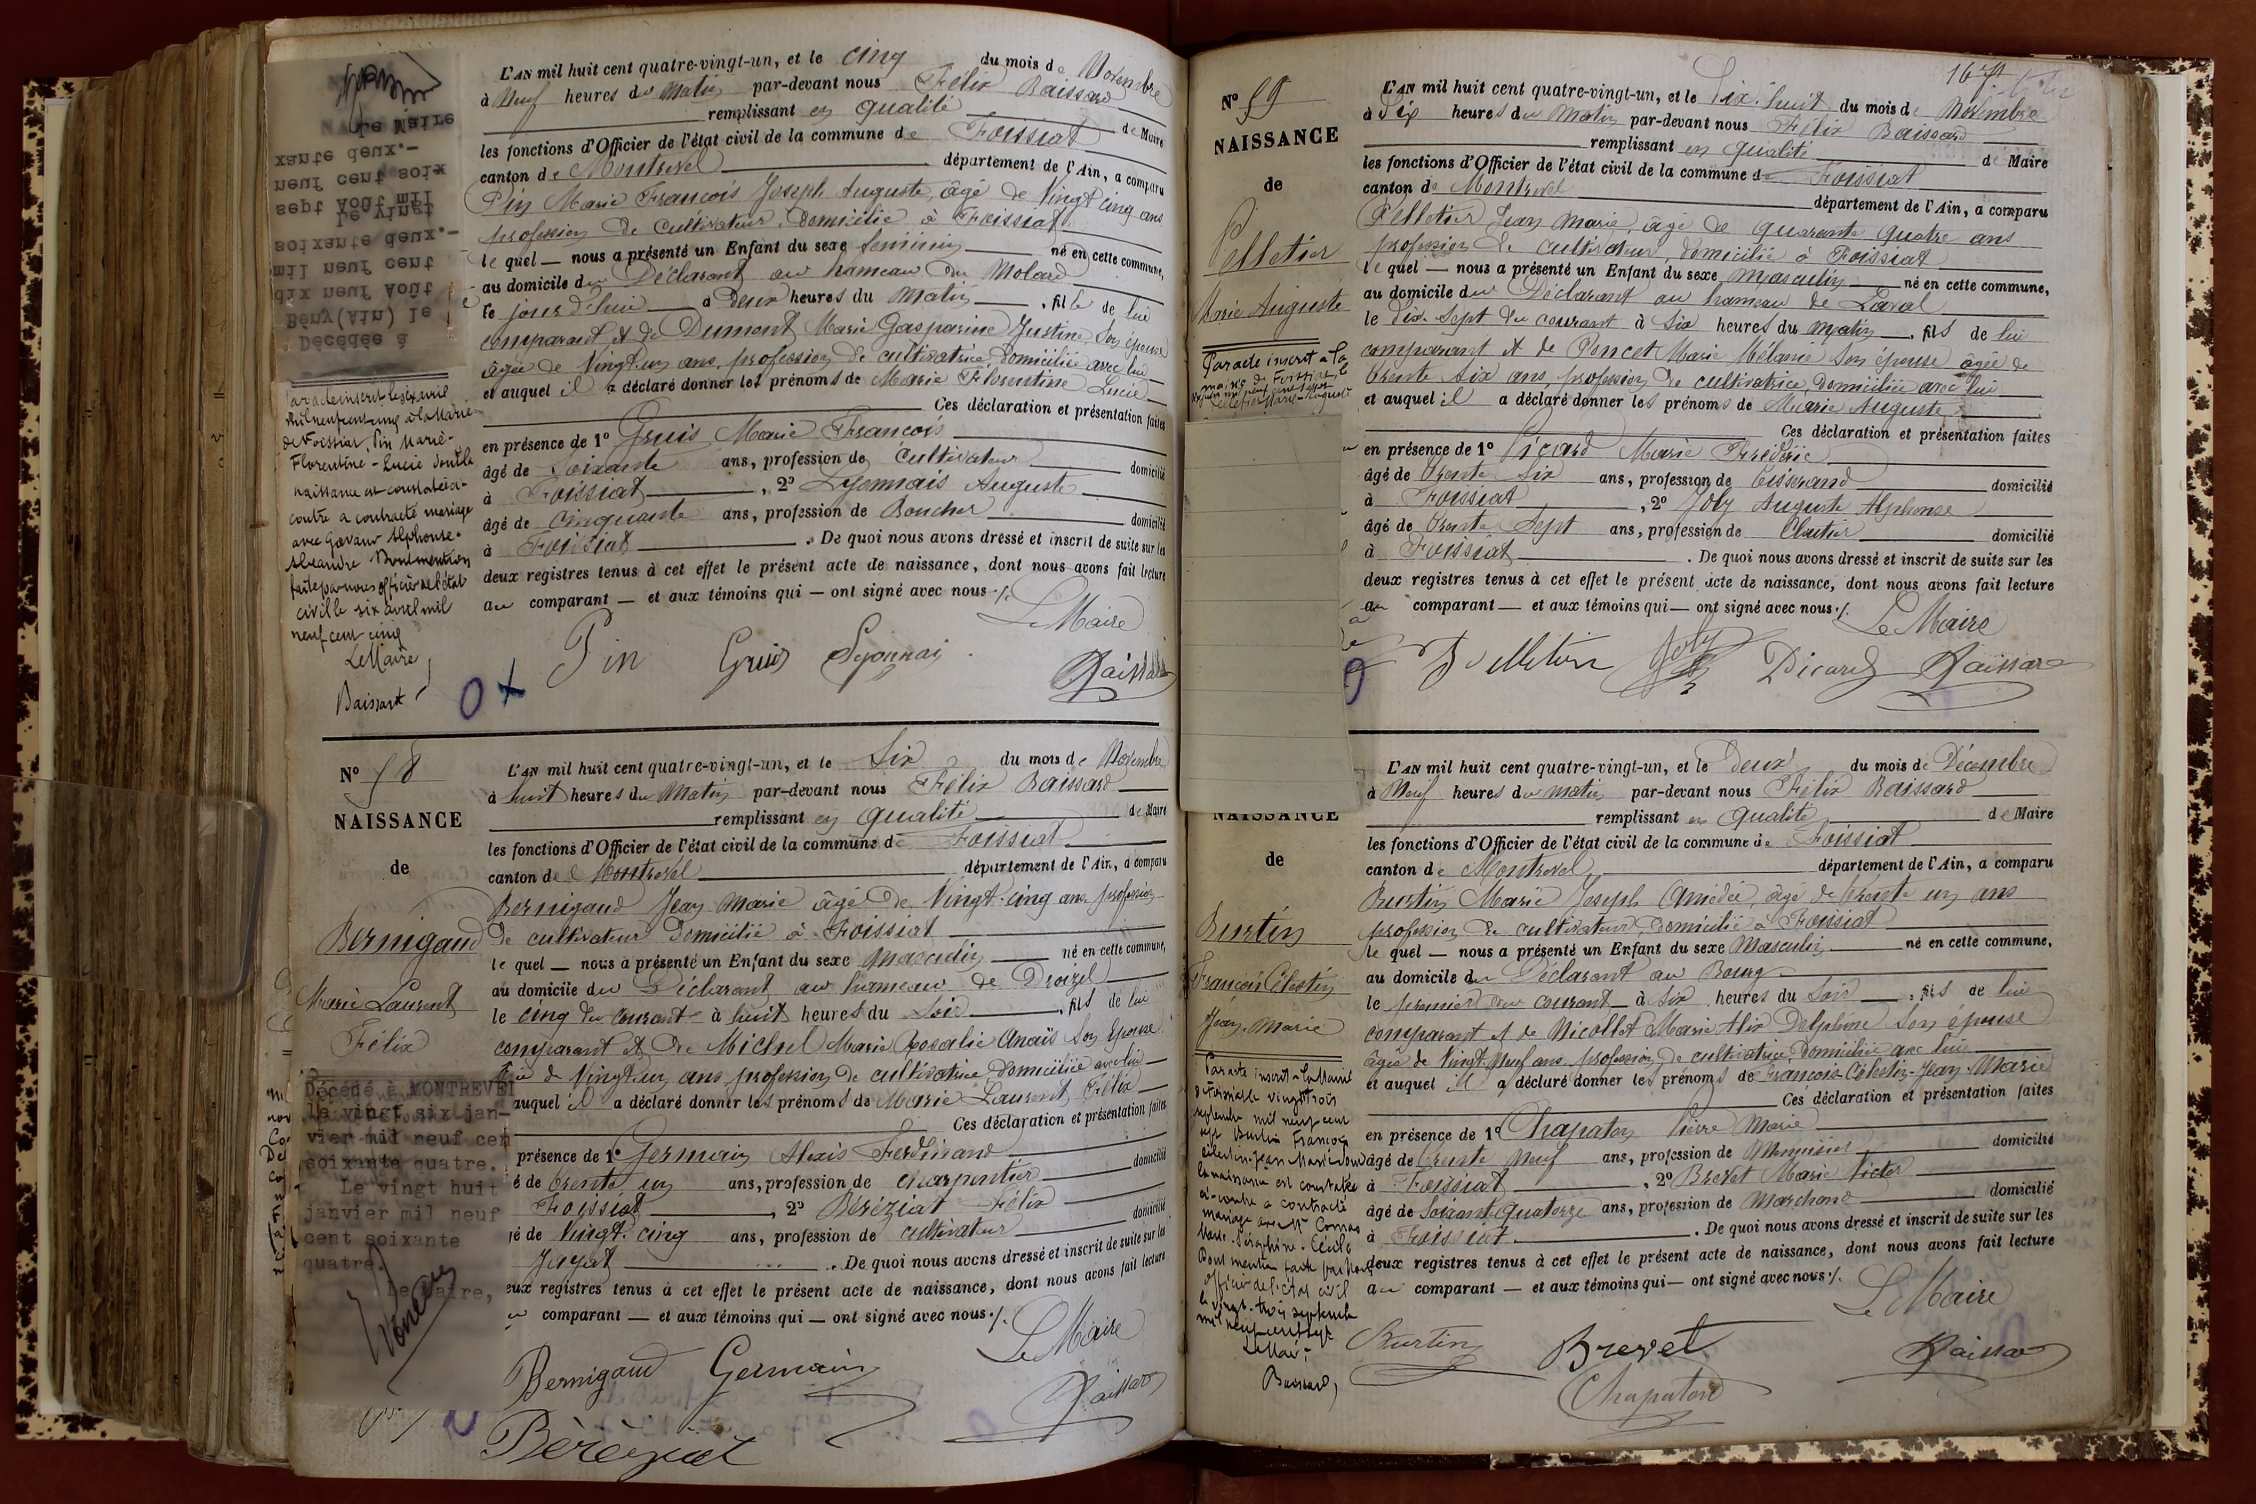 Le Maire
xante deux.-
neuf cent soix
sept Août mil
Le vingt
soixante deux.-
mil neuf cent
dix neuf Août
Bény(Ain) le
Décédée à
Par acte inscrit le six avril
mil neuf cent cinq à la Mairie
de Foissiat, Pin Marie-
Florentine-Lucie dont la
naissance est constatée ci-
contre a contracté mariage
avec Alphonse-
Dont mention
faite par nous officier de l'état
civil le six avril mil
neuf cent cinq
Le Maire
Baissard
L'AN mil huit cent quatre-vingt-un, et le cinq du mois de Novembre
à Neuf heures du Matin par-devant nous Félix Baissard
remplissant en qualité de Maire
les fonctions d'Officier de l'état civil de la commune de Foissiat
canton de Montrevel département de l'Ain, a comparu
Pin Marie François Joseph Auguste, âgé de Vingt cinq ans
profession de cultivateur, domicilié à Foissiat
lequel — nous a présenté un Enfant du sexe féminin né en cette commune,
au domicile du Déclarant au hameau du Molard
le jour d'hui à Deux heures du Matin, fille de lui
comparant et de Dumont Marie Gasparine Justine, son épouse
âgée de Vingt-un ans, profession de cultivatrice, domiciliée avec lui
et auquel il a déclaré donner les prénoms de Marie Florentine Lucie
Ces déclaration et présentation faites
en présence de 1º Gruis Marie François
âgé de soixante ans, profession de Cultivateur domicilié
à Foissiat, 2º Lyonnais Auguste
âgé de cinquante ans, profession de Boucher domicilié
à Foissiat. De quoi nous avons dressé et inscrit de suite sur les
deux registres tenus à cet effet le présent acte de naissance, dont nous avons fait lecture
au comparant — et aux témoins qui — ont signé avec nous ./.
Le Maire
Pin Gruis Lyonnais
Baissard
Nº 58
NAISSANCE
de
Bernigaud
Marie Laurent
Félix
Décédé à MONTREVEL
le vingt six jan-
vier mil neuf cent
soixante quatre.
Le vingt huit
janvier mil neuf
cent soixante
quatre
Le Maire,
L'AN mil huit cent quatre-vingt-un, et le Six du mois de Novembre
à huit heures du Matin par-devant nous Félix Baissard
remplissant en qualité de Maire
les fonctions d'Officier de l'état civil de la commune de Foissiat
canton de Montrevel département de l'Ain, a comparu
Bernigaud Jean Marie âgé de Vingt-cinq ans profession
de cultivateur domicilié à Foissiat
lequel — nous a présenté un Enfant du sexe Masculin né en cette commune,
au domicile du Déclarant au hameau de Droizel
le cinq du courant à huit heures du Soir, fils de lui
comparant et de Michel Marie Rosalie Anaïs son épouse
âgée de Vingt-un ans, profession de cultivatrice domiciliée avec lui
auquel il a déclaré donner les prénoms de Marie Laurent Félix
Ces déclaration et présentation faites
présence de 1º Germain Alexis Ferdinand
é de trente un ans, profession de charpentier domicilié
Foissiat, 2º Béréziat Félix
gé de Vingt-cinq ans, profession de cultivateur domicilié
Jayat. De quoi nous avons dressé et inscrit de suite sur les
eux registres tenus à cet effet le présent acte de naissance, dont nous avons fait lecture
au comparant — et aux témoins qui — ont signé avec nous ./.
Le Maire
Bernigaud Germain
Baissard
Béréziat
Nº 59
NAISSANCE
de
Pelletier
Marie Auguste
Par acte inscrit à la
L'AN mil huit cent quatre-vingt-un, et le Dix-huit du mois de Novembre
à Dix heures du Matin par-devant nous Félix Baissard
remplissant en qualité de Maire
les fonctions d'Officier de l'état civil de la commune de Foissiat
canton de Montrevel département de l'Ain, a comparu
Pelletier Jean Marie, âgé de quarante quatre ans
profession de cultivateur, domicilié à Foissiat
lequel — nous a présenté un Enfant du sexe Masculin né en cette commune,
au domicile du Déclarant au hameau de Laval
le Dix-Sept du courant à Six heures du Matin, fils de lui
comparant et de Poncet Marie Mélanie son épouse âgée de
trente six ans, profession de cultivatrice, domiciliée avec lui
et auquel il a déclaré donner les prénoms de Marie Auguste
Ces déclaration et présentation faites
en présence de 1º Picard Marie Frédéric
âgé de trente six ans, profession de tisserand domicilié
à Foissiat, 2º Joly Auguste Alphonse
âgé de trente Sept ans, profession de Cloutier domicilié
à Foissiat. De quoi nous avons dressé et inscrit de suite sur les
deux registres tenus à cet effet le présent acte de naissance, dont nous avons fait lecture
au comparant — et aux témoins qui — ont signé avec nous ./.
Le Maire
Pelletier Joly Picard Baissard
NAISSANCE
de
Burtin
François Célestin
Jean-Marie
Par acte inscrit à la Mairie
de Foissiat le vingt trois
septembre mil neuf cent
sept Burtin François
Célestin-Jean Marie dont
la naissance est constatée
ci-contre a contracté
mariage avec
Marie-Séraphine-Cécile
Dont mention faite par nous
officier de l'état civil
le vingt-trois septembre
mil neuf cent sept
Le Maire
Baissard
L'AN mil huit cent quatre-vingt-un, et le Deux du mois de Décembre
à Neuf heures du Matin par-devant nous Félix Baissard
remplissant en qualité de Maire
les fonctions d'Officier de l'état civil de la commune de Foissiat
canton de Montrevel département de l'Ain, a comparu
Burtin Marie Joseph Amédée, âgé de trente un ans
profession de cultivateur, domicilié à Foissiat
lequel — nous a présenté un Enfant du sexe Masculin né en cette commune,
au domicile du Déclarant au Bourg
le premier du courant à six heures du Soir, fils de lui
comparant et de Nicollet Marie Alix Delphine son épouse
âgée de Vingt-Neuf ans, profession de cultivatrice, domiciliée avec lui
et auquel il a déclaré donner les prénoms de François-Célestin-Jean-Marie
Ces déclaration et présentation faites
en présence de 1º Chapaton Pierre Marie
âgé de trente Neuf ans, profession de Menuisier domicilié
à Foissiat, 2º Brevet Marie Victor
âgé de Soixante Quatorze ans, profession de Marchand domicilié
à Foissiat. De quoi nous avons dressé et inscrit de suite sur les
deux registres tenus à cet effet le présent acte de naissance, dont nous avons fait lecture
au comparant — et aux témoins qui — ont signé avec nous ./.
Le Maire
Burtin Brevet Baissard
Chapaton